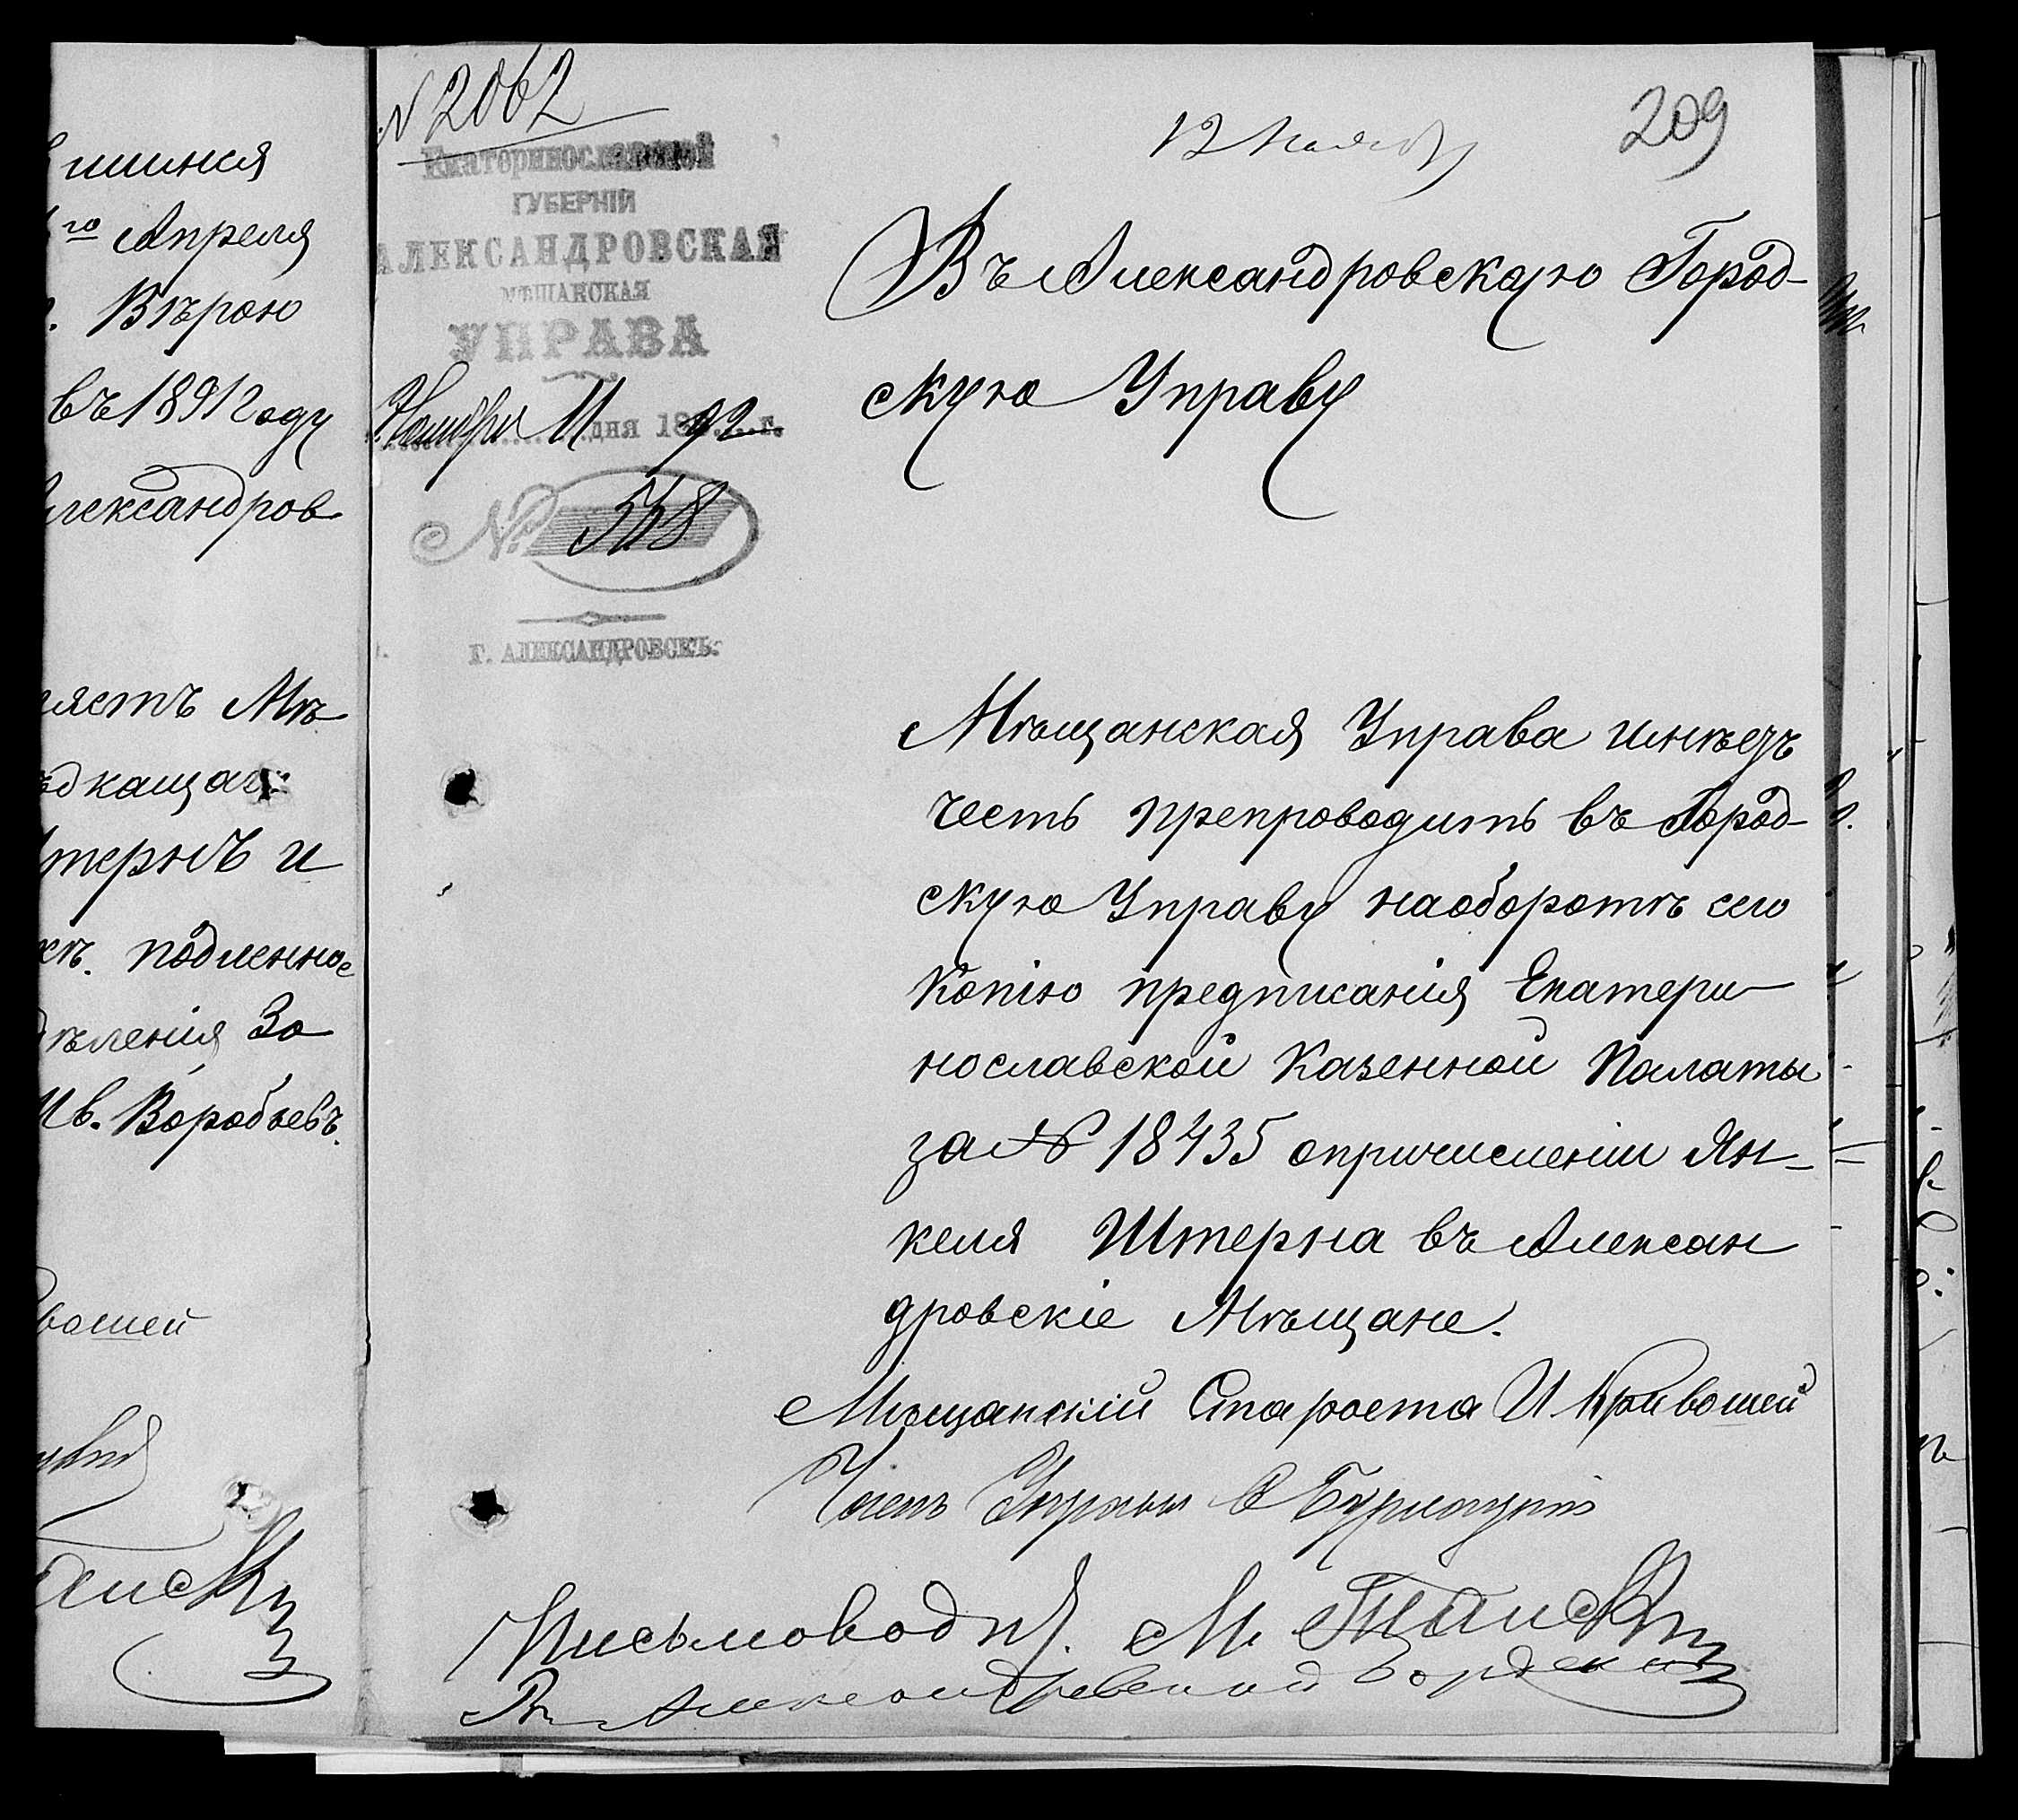 шинкя
го Апреля
Вѣрою
въ 1891 году
лександров
ляетъ Мѣ
Штернъ и
подленное
дѣленія За
Ив. Воробьевъ.
вошей
N 2062
12 Ноября
209
Екатеринославской
ГУБЕРНІЙ
АЛЕКСАНДРОВСКАЯ
МѢЩАНСКАЯ
УПРАВА
Ноября 11 дня 1892 г.
№ 558
Г. АЛЕКСАНДРОВСКЪ.
Въ Александровскую Город-
скую Управу
Мѣщанская Управа имѣетъ
честь препроводить въ Город-
скую Управу наоборотѣ сего
копію предписанія Екатери
нославской Казенной Палаты
за № 18435 опричисленіи Ян-
келя Штерна въ Алексан
дровскіе Мѣщане.
Мѣщанскій Староста И Кривошей
Членъ Управы
Письмоводит. М.
Въ Александровской Городской